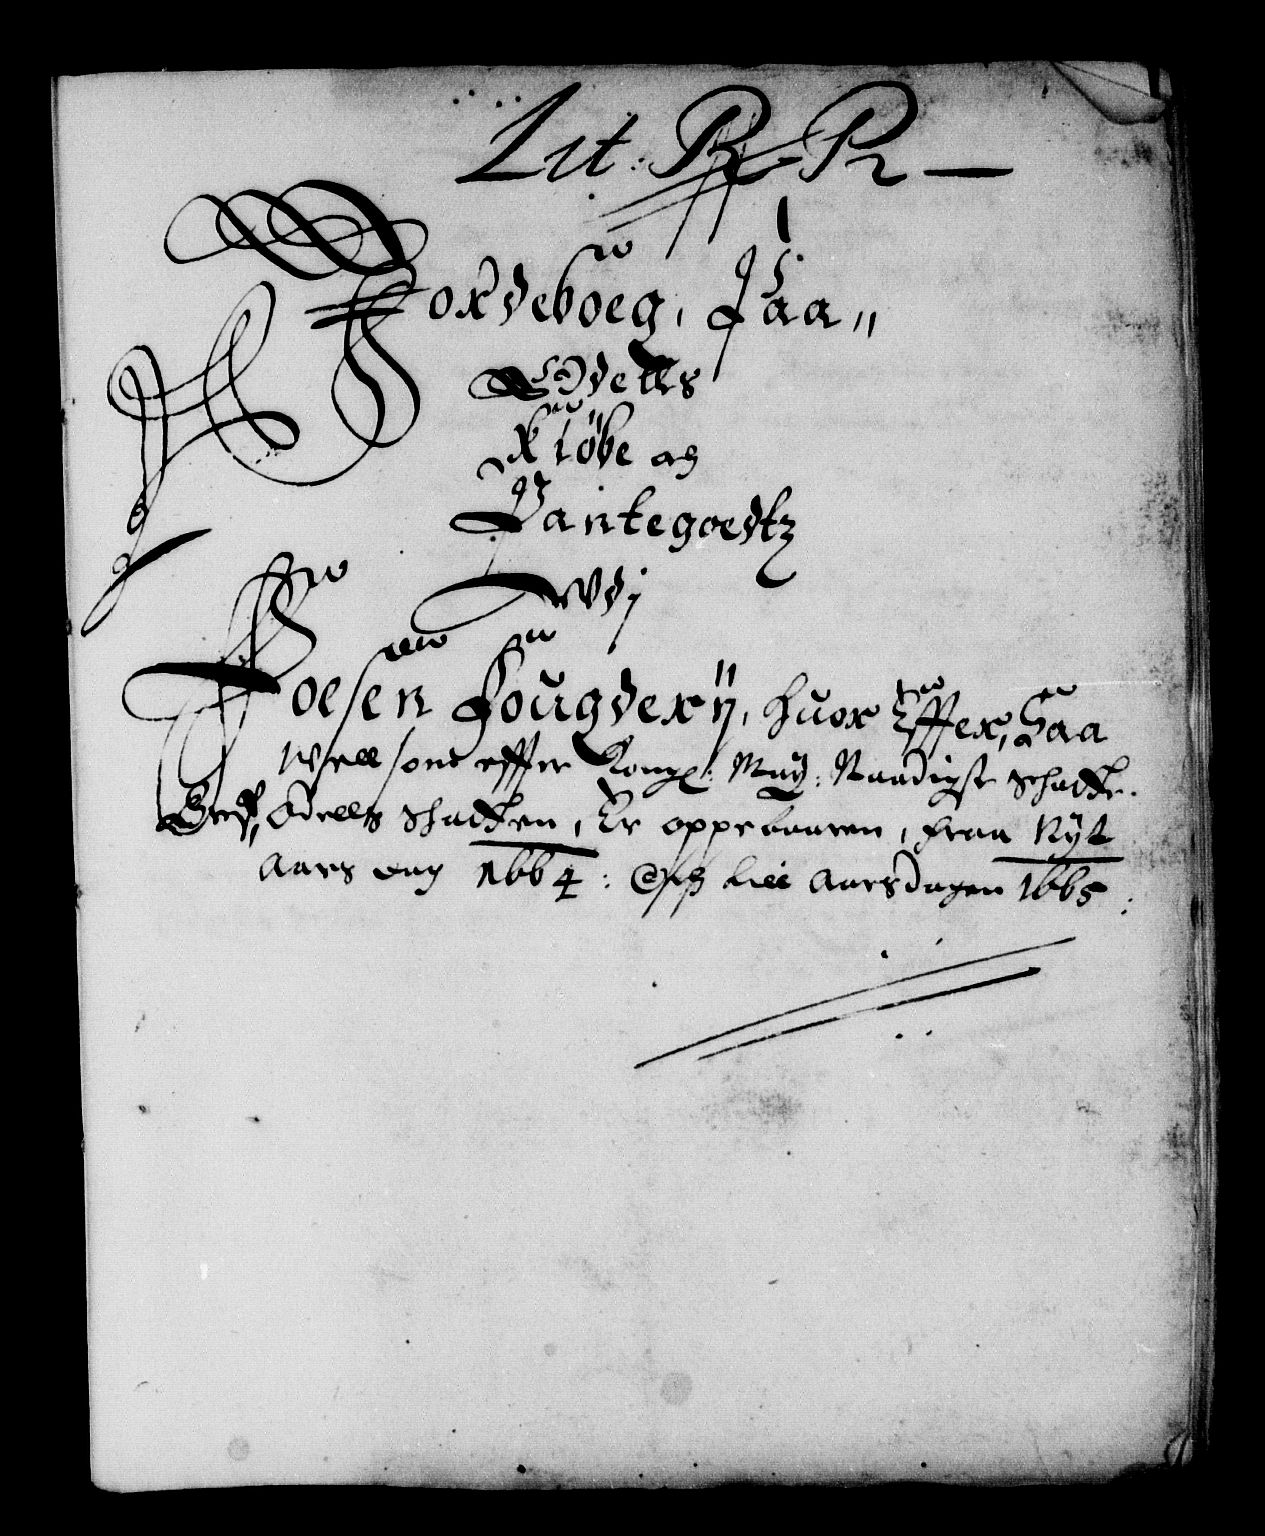 Lit: R: R —
1
Jordeboeg, Paa //
Odells
Kiöbe og
Pantegoedtz
Udj
Foesen Fougderij, huor Effter, Saa
well som effter Kongl: May: Naadigste Schatte-
Bref, Odells Schatten, Er oppebaaren, fraa Nyt
Aars dag 1664: Och till Aarsdagen 1665: